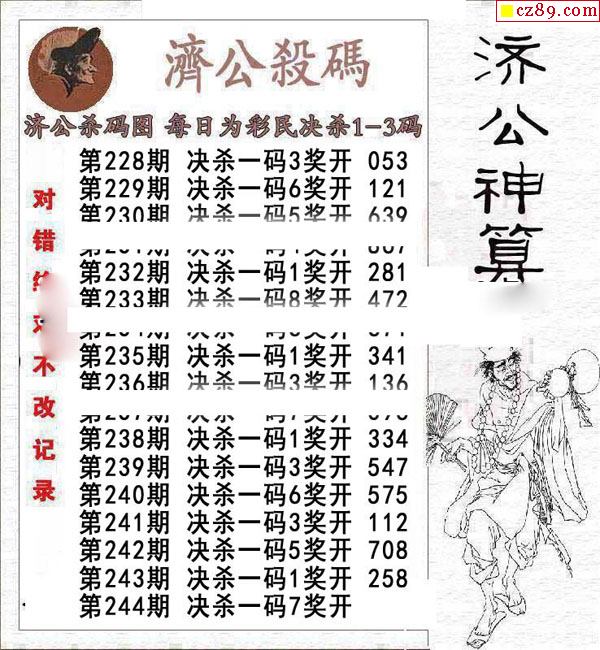 cz89.com
濟公殺碼
济公杀码图 每日为彩民决杀1-3码
第228期 决杀一码3奖开 053
第229期 决杀一码6奖开 121
第230期 决杀一码5奖开 639
决杀一码 奖开
第232期 决杀一码1奖开 281
第233期 决杀一码8奖开 472
第235期 决杀一码1奖开 341
第236期 决杀一码3奖开 136
第238期 决杀一码1奖开 334
第239期 决杀一码3奖开 547
第240期 决杀一码6奖开 575
第241期 决杀一码3奖开 112
第242期 决杀一码5奖开 708
第243期 决杀一码1奖开 258
第244期 决杀一码7奖开
对错 不改记录
济公神算